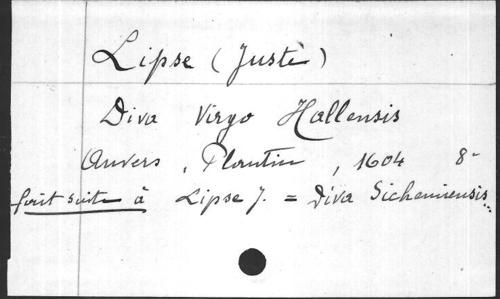 Lipse (Juste)
Diva Virgo Hallensis
Anvers, Plantin, 1604 8°
fait suite à Lipse J. = Diva Sichemiensis.